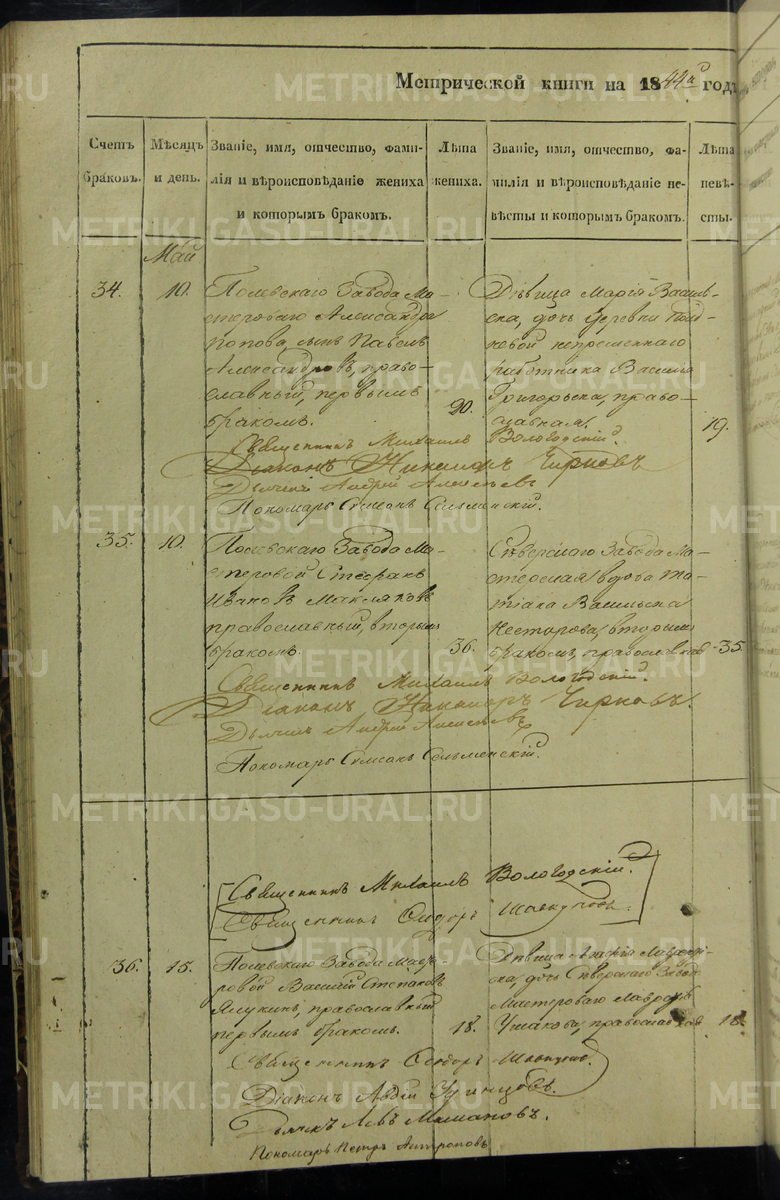 Метрической книги на 1844й годъ
Счетъ браковъ.
Мѣсяцъ и день.
Званіе, имя, отчество, фами-
лія и вѣроисповѣданіе жениха
и которымъ бракомъ.
Лѣта
жениха.
Званіе, имя, отчество, фа-
милія и вѣроисповѣданіе не-
вѣсты и которымъ бракомъ.
Лѣта
невѣ-
сты.
Май
34.
10.
Полевскаго Завода Ма-
стероваго Александра
Попова, сынъ Павелъ
Александровъ, право-
славный, первымъ
бракомъ.
20.
Дѣвица Марія Василь-
ева, дочь деревни
непремѣннаго
работника Василія
Григорьева, право-
славная.
19.
Священникъ Михаилъ Вологодскій.
Діаконъ Никаноръ Чирковъ
Дьячекъ Андрей Алексѣевъ
Пономарь Симеонъ Сельменскій.
35.
10.
Полевскаго Завода Ма-
стеровой Стефанъ
Ивановъ Макляковъ
православный, вторымъ
бракомъ.
36.
Сѣверскаго Завода Ма-
стерская вдова Та-
тіана Васильева
Нестерова, вторымъ
бракомъ, православная
35.
Священникъ Михаилъ Вологодскій.
Діаконъ Никаноръ Чирковъ.
Дьячекъ Андрей Алексѣевъ
Пономарь Симеонъ Сельменскій.
Священникъ Михаилъ Вологодскій.
Священникъ Сидоръ
36.
15.
Полевскаго Завода Масте-
ровой Василій Степановъ
православный
первымъ бракомъ.
18.
Дѣвица Марія Лаврентье-
ва, дочь Сѣверскаго Завода
Мастероваго Лаврентія
Ушакова, православная
18.
Священникъ Сидоръ
Діаконъ Авдій Удинцовъ.
Дьячекъ Левъ
Пономарь Петръ Антроповъ
METRIKI.GASO-URAL.RU